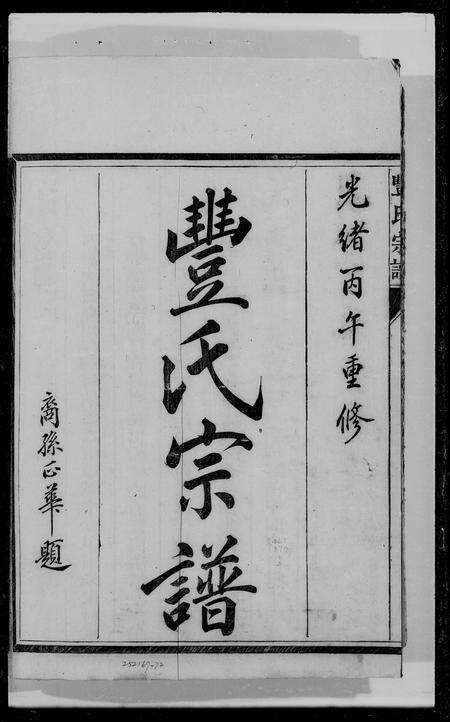 豐氏宗譜
光緒丙午重修
豐氏宗譜
裔孫正華題
252167-72